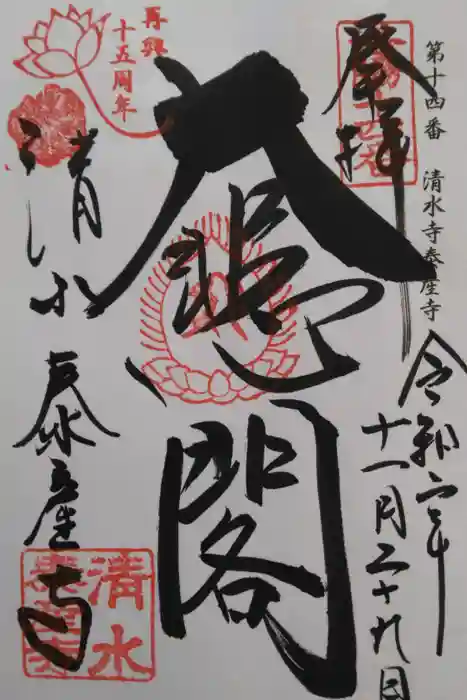 第十四番 清水寺泰産寺
奉拝
令和二年
十一月二十九日
大悲閣
再興
十五周年
清水 泰産寺
清水
泰産寺